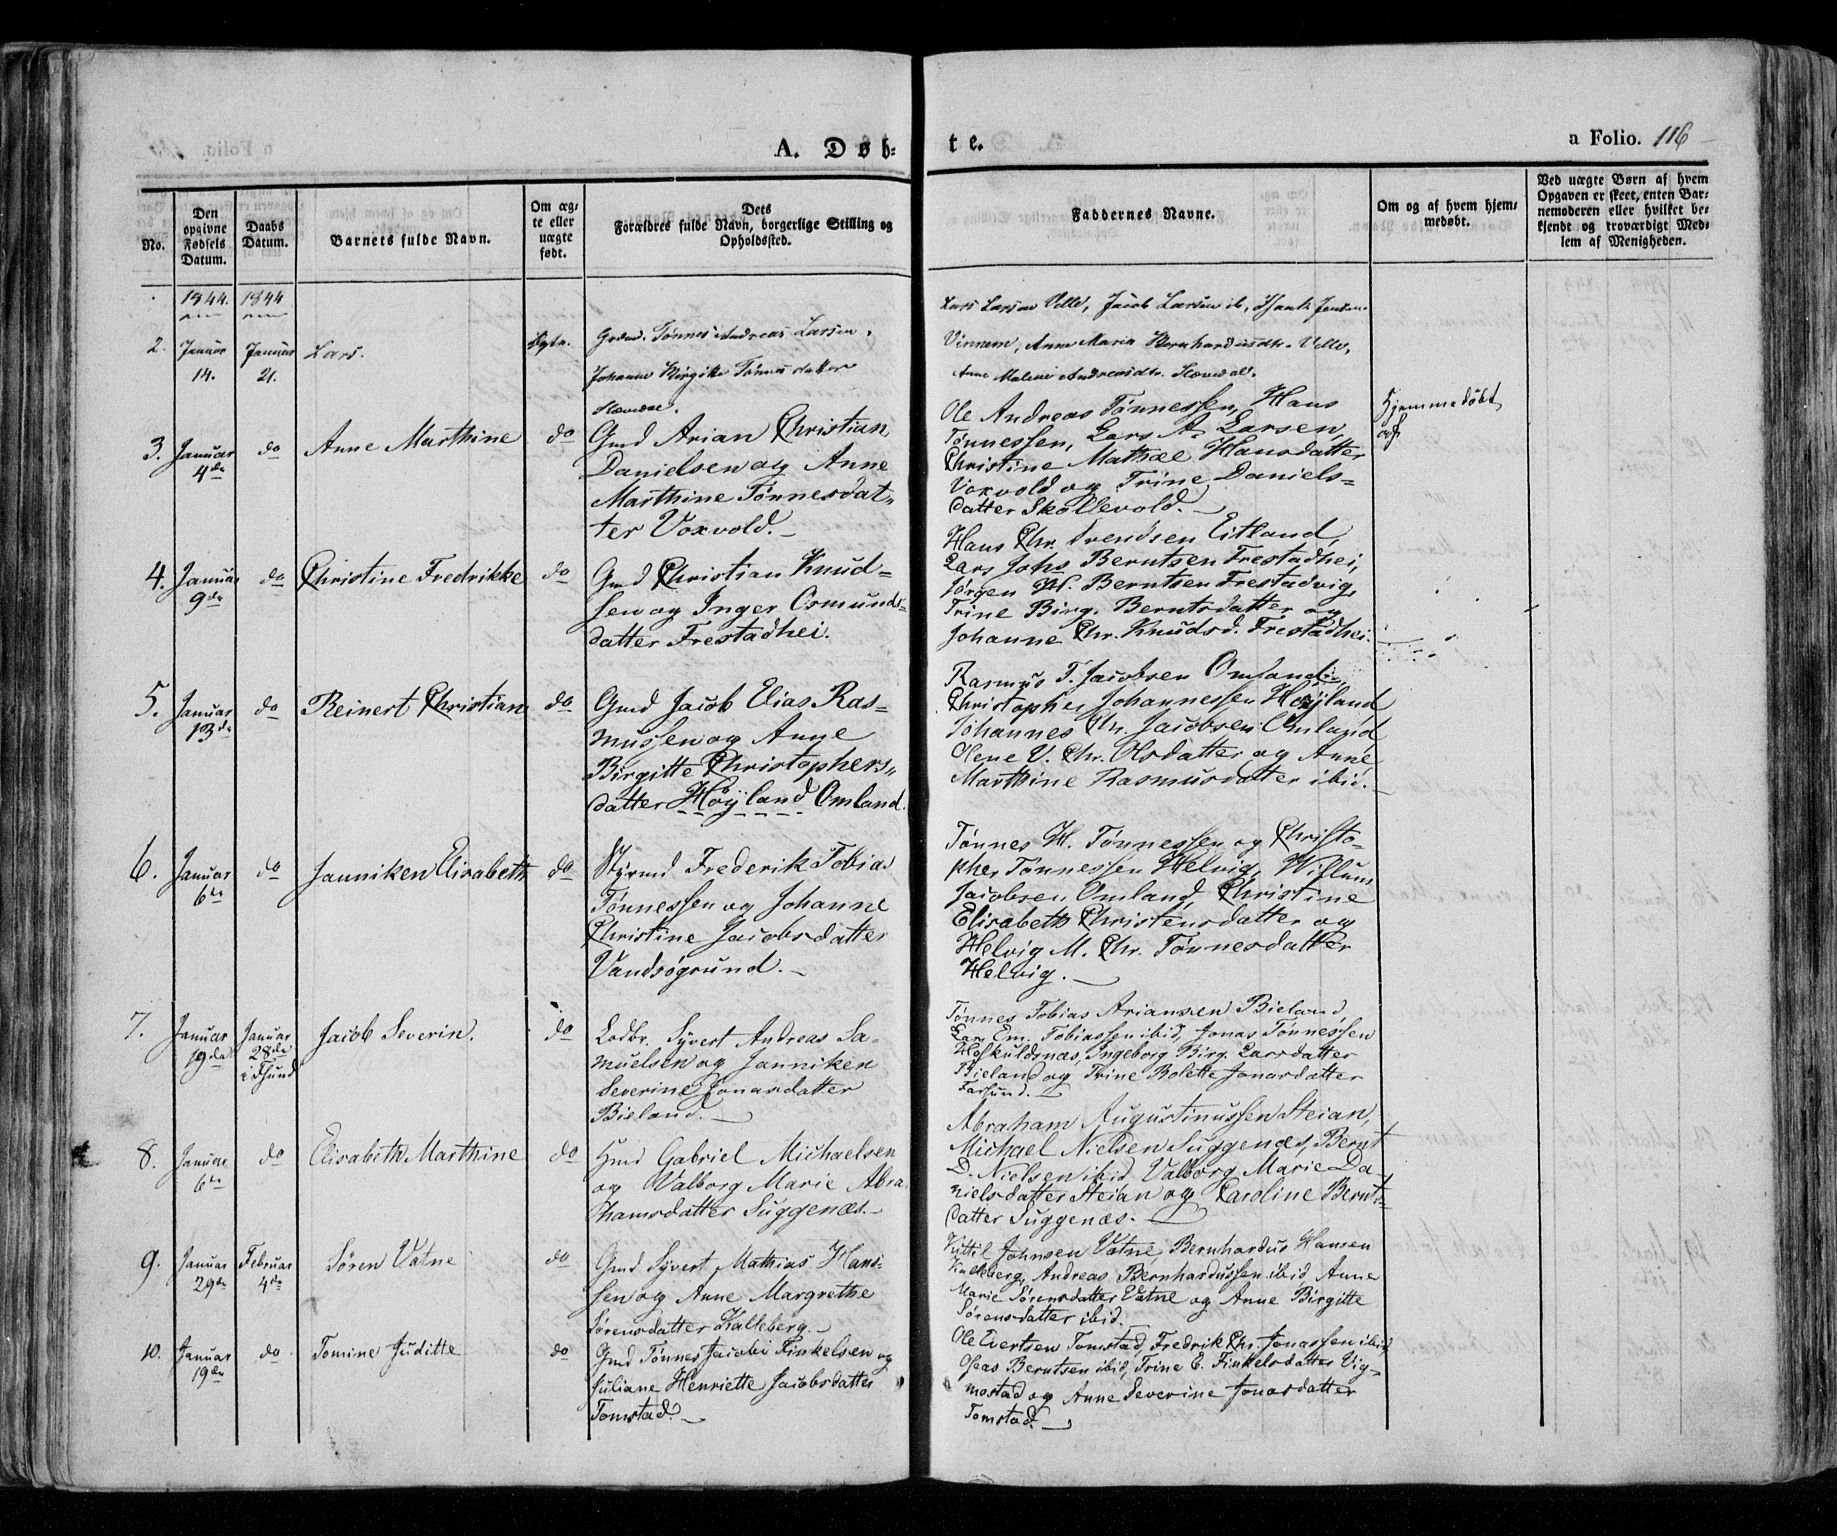 A. Døb- te.
a Folio. 116
No.
Den opgivne Fødsels Datum.
Daabs Datum.
Barnets fulde Navn.
Om æg- te eller uægte født.
Dets Forældres fulde Navn, borgerlige Stilling og Opholdssted.
Faddernes Navne.
Om og af hvem hjem- medøbt.
Ved uægte Børn af hvem Opgaven er skeet, enten Bar- nemoderen eller hvilket be- kjendt og troværdigt Med- lem af Menigheden.
1844. 1844
2. Januar 14. Januar 21. Lars. Ægte.
Grdmd. Tønnes Andreas Larsen,
Johanne Birgitte Tønnesdatter
Lars Larsen Velle, Jacob Larsen ib, Isaach Jensen
Vinnem, Anne Maria Bernhardusdtr. Velle,
Anne Malene Andreasdtr.
3. Januar 4de do Anne Marthine do
Gmd Arian Christian
Danielsen og Anne
Marthine Tønnesdat-
ter Voxvold.
Ole Andreas Tønnessen, Hans
Tønnessen, Lars A. Larsen,
Christine Mathæe Hansdatter
Voxvold og Trine Daniels-
datter Skollevold.
Hjemmedøbt
af
4. Januar 9de do Christine Fredrikke do
Gmd Christian Knud-
sen og Inger Osmunds-
datter Frestadhei.
Hans Chr. Svendsen Eitland,
Lars Johs Berntsen Frestadhei,
Jørgen H. Berntsen Frestadvig,
Trine Birg. Berntsdatter og
Johanne Chr. Knudsd. Frestadhei.
5. Januar 13de do Reinert Christian do
Gmd Jacob Elias Ras-
mussen og Anne
Birgitte Christophers-
datter Høyland Omland.
Rasmus T. Jacobsen Omland,
Christopher Johannessen Høyland
Johannes Chr. Jacobsen Omland
Olene V. Chr. Olsdatter og Anne
Marthine Rasmusdatter ibid.
6. Januar 6te do Janniken Elisabeth do
Styrmd Frederik Tobias
Tønnessen og Johanne
Christine Jacobsdatter
Vandsøgrund.
Tønnes H. Tønnessen og Christo-
pher Tønnessen Helvig, Willum
Jacobsen Omland, Christine
Elisabeth Christensdatter og
Helvig M. Chr. Tønnesdatter
Helvig.
7. Januar 19de Januar 28de i Fsund Jacob Severin. do
Lodbr. Syvert Andreas Sa-
muelsen og Janniken
Severine Jonasdatter
Bieland.
Tønnes Tobias Ariansen Bieland,
Lars Em. Tobiassen ibid, Jonas Tønnessen
Høskuldsnæs, Ingeborg Birg. Larsdatter
Bieland og Trine Bolette Jonasdatter
Farsund.
8. Januar 6te do Elisabeth Marthine do
Hmd Gabriel Michaelsen
og Valborg Marie Abra-
hamsdatter Suggenæs.
Abraham Augustinussen Steian,
Michael Nielsen Suggenæs, Bernt
D. Nielsen ibid, Valborg Marie Da-
nielsdatter Steian og Caroline Bernts-
datter Suggenæs.
9. Januar 29de Februar 4de Søren Vatne do
Gmd Syvert Mathias Han-
sen og Anne Margrethe
Sørensdatter Kalleberg.
Kittil Johnsen Vatne, Bernhardus Hansen
Kalleberg, Andreas Bernhardussen ibid Anne
Marie Sørensdatter Vatne og Anne Birgitte
Sørensdatter ibid.
10. Januar 19de do Tomine Juditte do
Gmd Tønnes Jacobi Finkelsen og
Juliane Henriette Jacobsdatter
Tomstad.
Ole Evertsen Tomstad, Fredrik Chr. Jonassen ibid
Oseas Berntsen ibid, Trine E. Finkelsdatter Vig-
mostad og Anne Severine Jonasdatter
Tomstad.